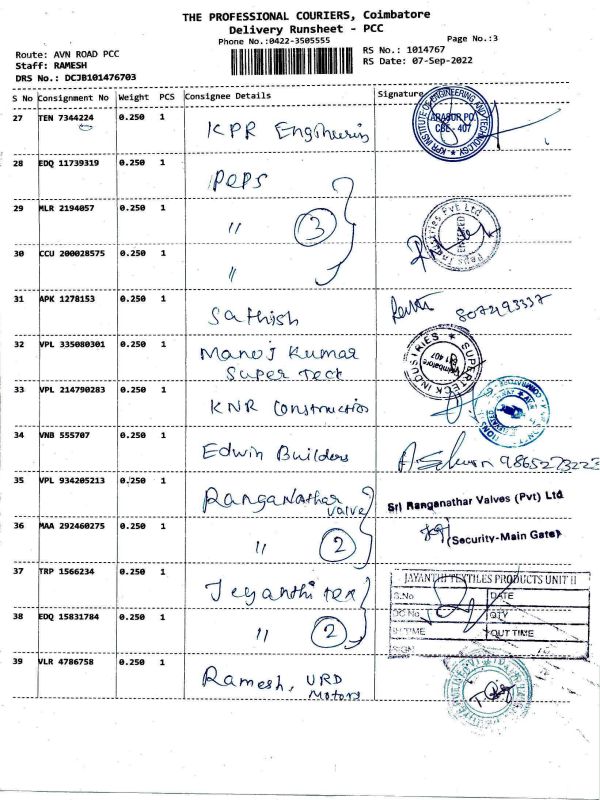 THE PROFESSIONAL COURIERS, Coimbatore
Delivery Runsheet - PCC
Phone No.:0422-3505555
Page No.:3
Route: AVN ROAD PCC
RS No.: 1014767
Staff: RAMESH
RS Date: 07-Sep-2022
DRS No.: DCJB101476703
S No Consignment No Weight PCS Consignee Details Signature
27 TEN 7344224 0.250 1 KPR Engineering
KPR INSTITUTE OF ENGINEERING AND TECHNOLOGY
ARASUR PO.
CBE - 407
28 EDQ 11739319 0.250 1 Peps
29 MLR 2194057 0.250 1 〃 3
30 CCU 200028575 0.250 1 〃
31 APK 1278153 0.250 1 Sathish
32 VPL 335080301 0.250 1 Manoj Kumar
Super Teck
SUPERTECK INDUSTRIES
Coimbatore
33 VPL 214790283 0.250 1 KNR Construction
34 VNB 555707 0.250 1 Edwin Builders 9865273223
35 VPL 934205213 0.250 1 Ranganathar
Valve
Sri Ranganathar Valves (Pvt) Ltd
36 MAA 292460275 0.250 1 〃 2
(Security-Main Gate)
37 TRP 1566234 0.250 1 Jeyanthi Tex
JAYANTHI TEXTILES PRODUCTS UNIT II
S.No. DATE
QTY
38 EDQ 15831784 0.250 1 〃 2
TIME OUT TIME
SIGN
39 VLR 4786758 0.250 1 Ramesh, URD
Motors